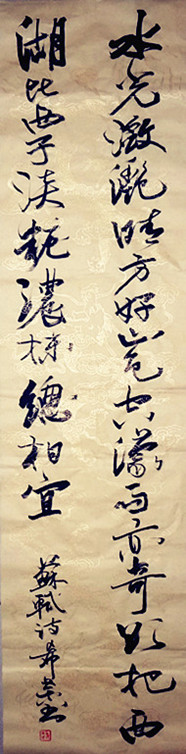 水光潋滟晴方好山色空濛雨亦奇欲把西
湖比西子淡粧濃抹總相宜
蘇軾诗